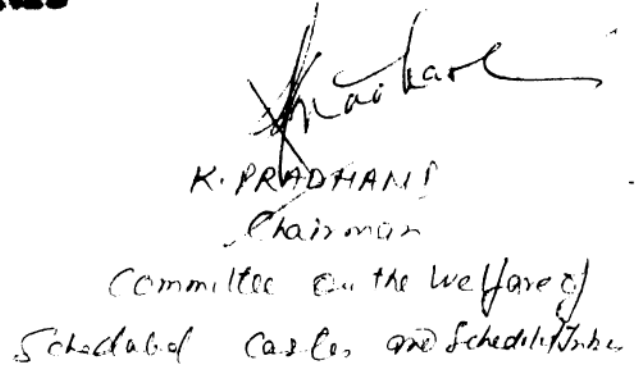 K. PRADHANI
Chairman
Committee on the Welfare of
Scheduled Castes and Scheduled Tribes